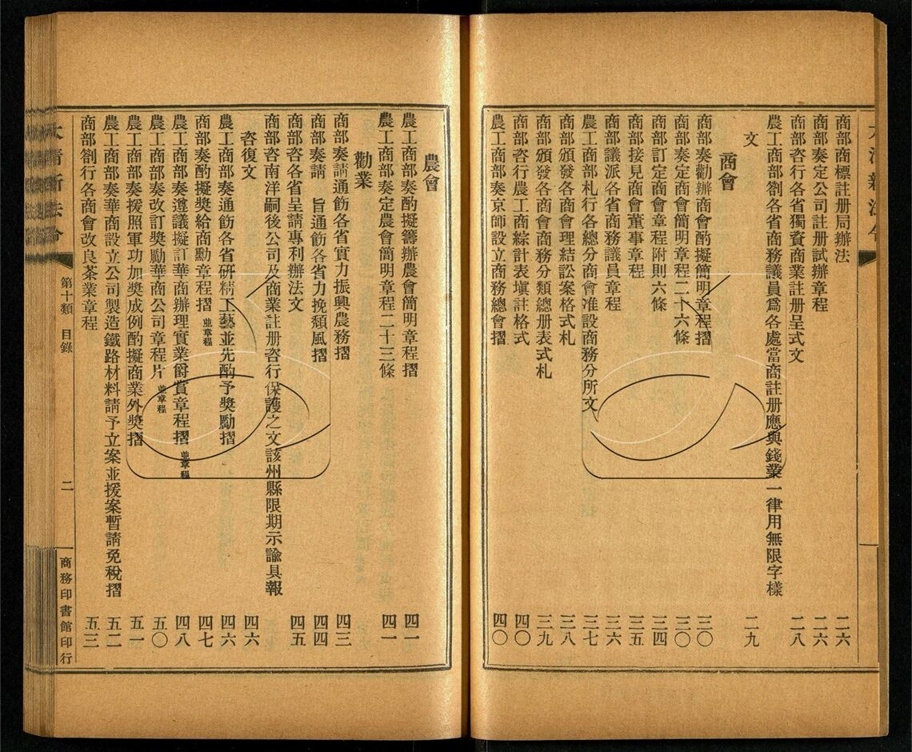 商部商標註册局辦法 二六
商部奏定公司註册試辦章程 二六
商部咨行各省獨資商業註册呈式文 二八
農工商部劄各省商務議員爲各處當商註册應與錢業一律用無限字樣
文 二九
商會
商部奏勸辦商會酌擬簡明章程摺 三〇
商部奏定商會簡明章程二十六條 三〇
商部訂定商會章程附則六條 三四
商部接見商會董事章程 三五
商部議派各省商務議員章程 三六
農工商部札行各總分商會准設商務分所文 三七
商部頒發各商會理結訟案格式札 三八
商部頒發各商會商務分類總册表式札 三九
商部咨行農工商綜計表塡註格式 四〇
農工商部奏京師設立商務總會摺 四〇
農會
農工商部奏酌擬籌辦農會簡明章程摺 四一
農工商部奏定農會簡明章程二十三條 四一
勸業
商部奏請通飭各省實力振興農務摺 四三
商部奏請 旨通飭各省力挽頹風摺 四四
商部咨各省呈請專利辦法文 四五
商部咨南洋嗣後公司及商業註册咨行保護之文該州縣限期示諭具報
咨復文 四六
農工商部奏通飭各省研精工藝並先酌予獎勵摺 四六
商部奏酌擬獎給商勳章程摺 並章程 四七
農工商部奏遵議擬訂華商辦理實業爵賞章程摺 並章程 四八
農工商部奏改訂獎勵華商公司章程片 並章程 五〇
農工商部奏援照軍功加獎成例酌擬商業外獎摺 五一
農工商部奏華商設立公司製造鐵路材料請予立案並援案暫請免稅摺 五二
商部劄行各商會改良茶業章程 五三
大清新法令
第十類 目錄
二
商務印書館印行